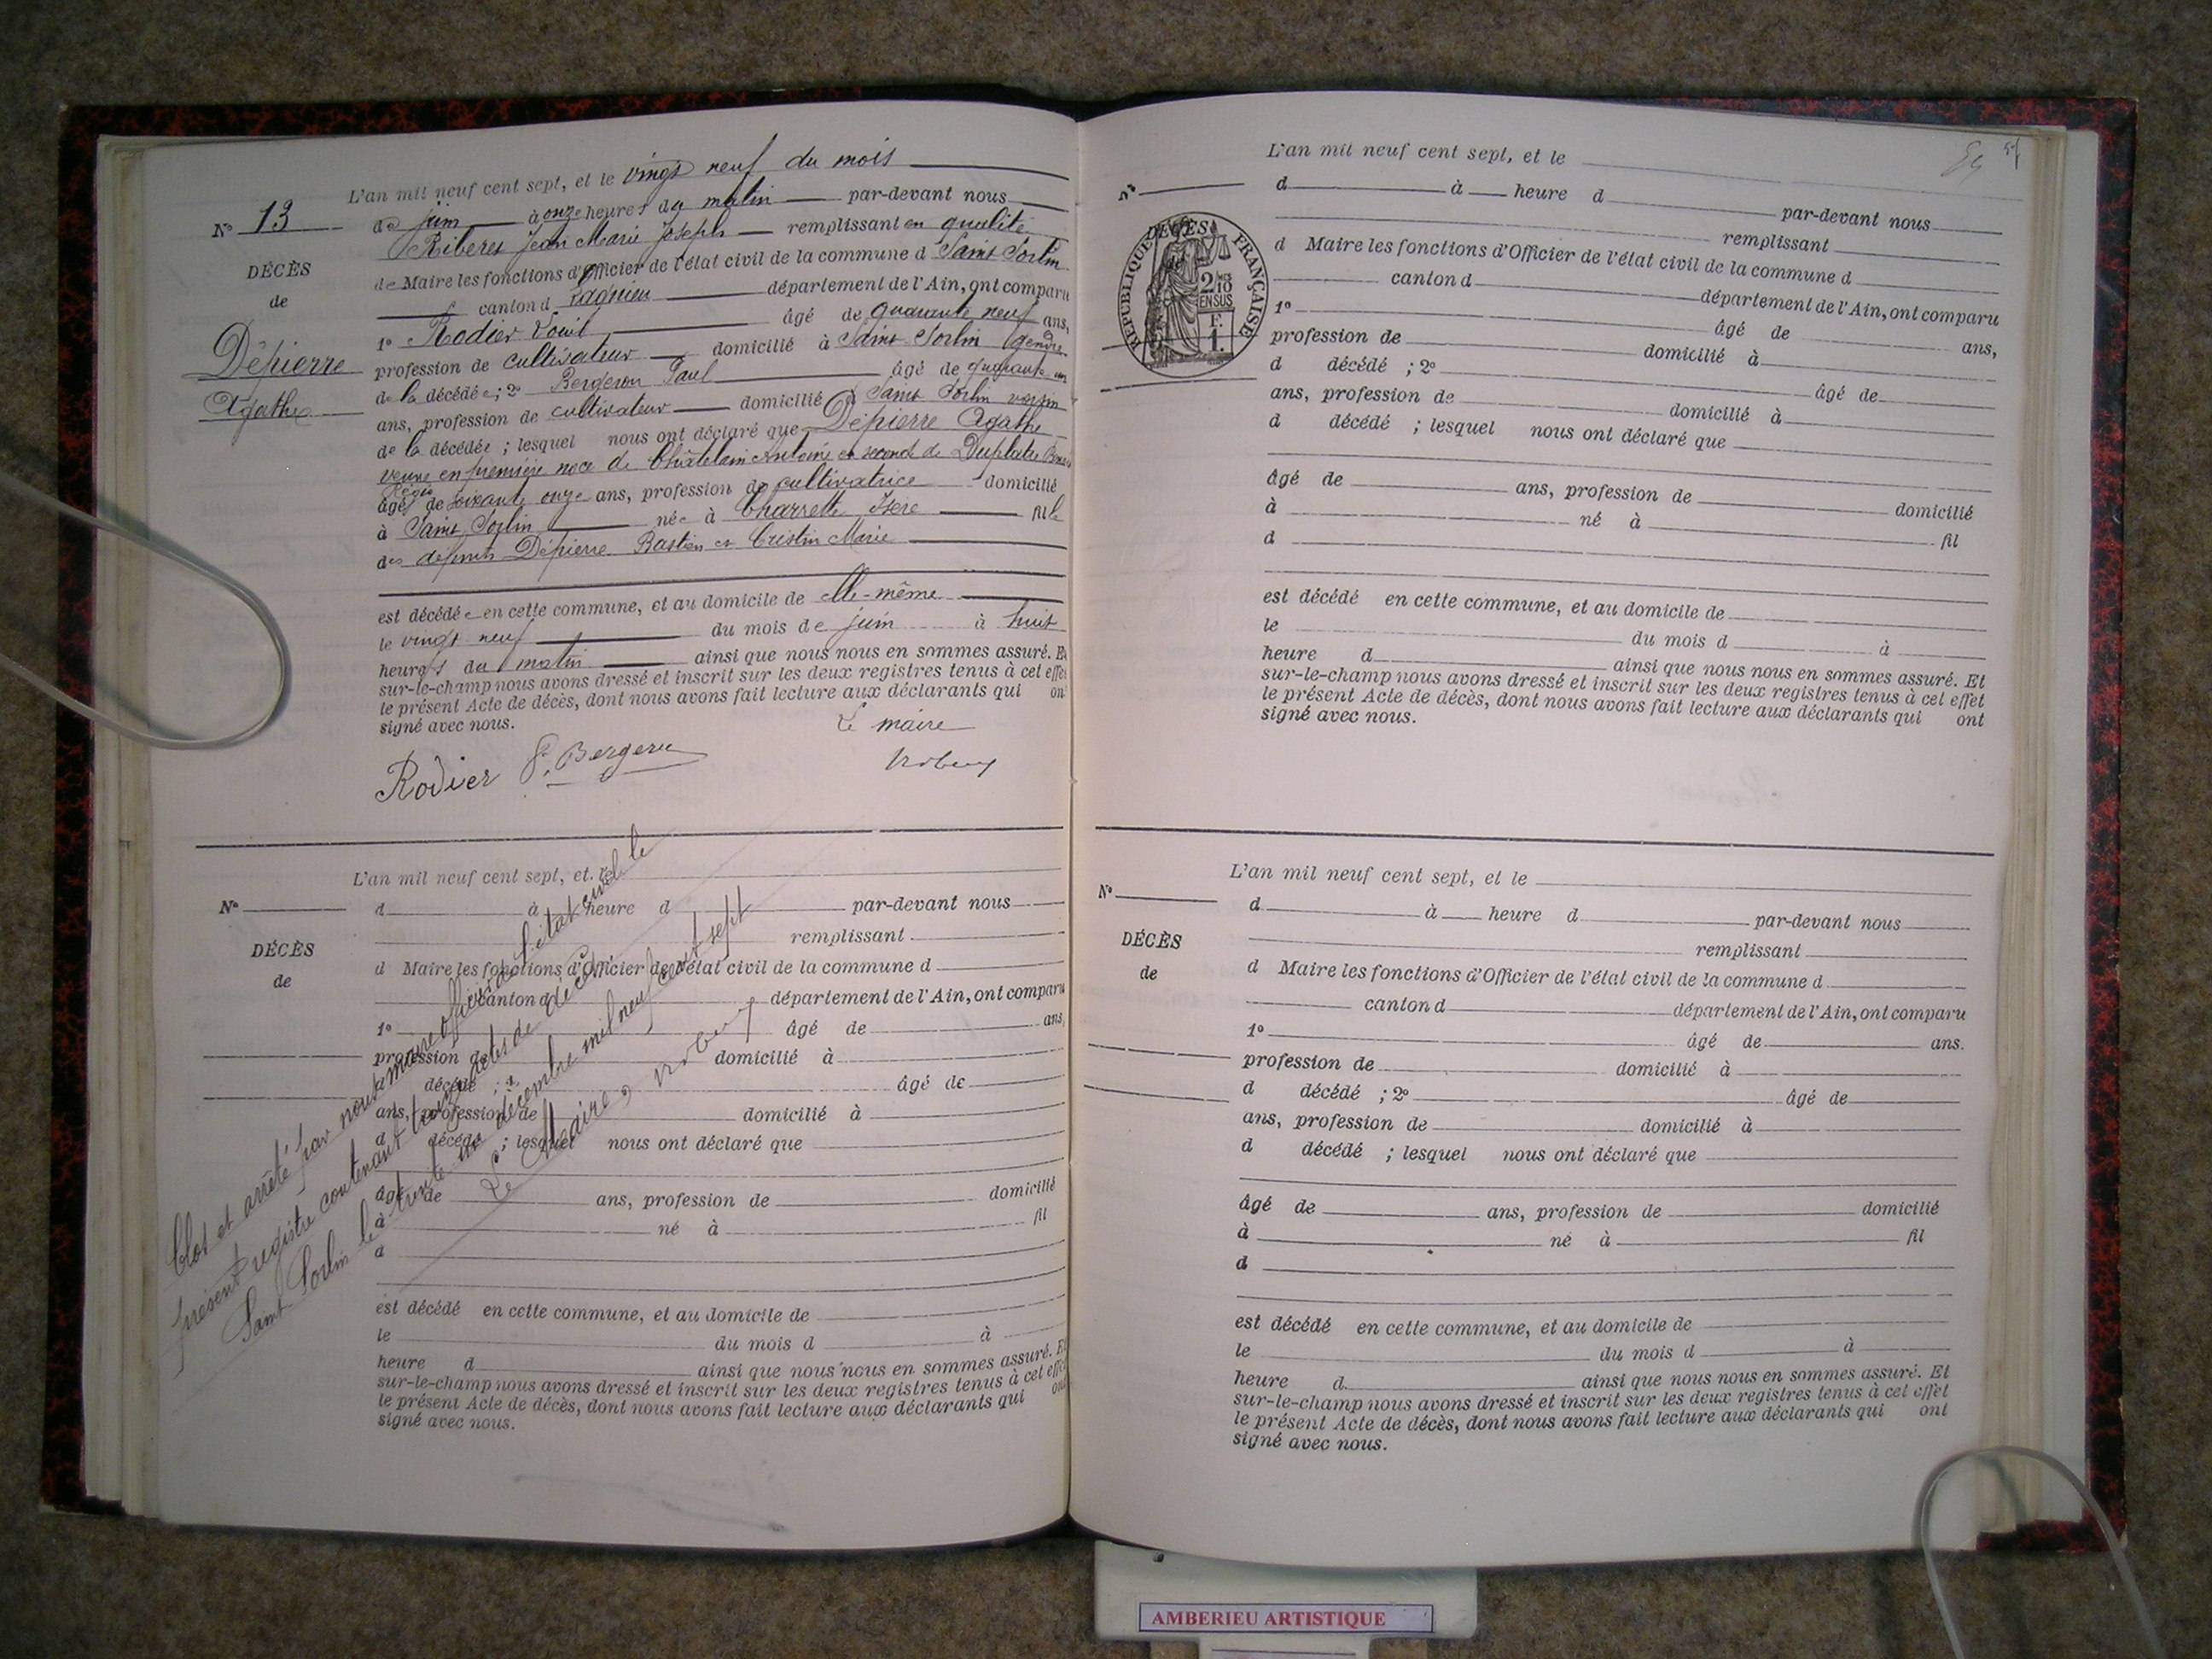 L'an mil neuf cent sept, et le vingt neuf du mois
N° 13
de juin à onze heures du matin par-devant nous
Riberes Jean Marie Joseph remplissant en qualité
de Maire les fonctions d'Officier de l'état civil de la commune d Saint Sorlin
canton d Lagnieu département de l'Ain, ont comparu
1° Rodier Louis âgé de quarante neuf ans,
profession de cultivateur domicilié à Saint Sorlin gendre
de la décédée; 2° Bergeron Paul âgé de quarante
ans, profession de cultivateur domicilié à Saint Sorlin voisin
de la décédée ; lesquel nous ont déclaré que Dépierre Agathe
veuve en première noce de Châtelain Antoine et second de Duplatre
Régis
âgée de soixante onze ans, profession de cultivatrice domicilié
à Saint Sorlin née à Charrette Isère fille
des defunts Dépierre Bastien et Cristin Marie
est décédée en cette commune, et au domicile de elle-même
le vingt neuf du mois de juin à huit
heures du matin ainsi que nous nous en sommes assuré. Et
sur-le-champ nous avons dressé et inscrit sur les deux registres tenus à cet effet
le présent Acte de décès, dont nous avons fait lecture aux déclarants qui ont
signé avec nous.
DÉCÈS
de
Dépierre
Agathe
Le maire
Rodier P. Bergeron
L'an mil neuf cent sept, et le
N°
d à heure d par-devant nous
remplissant
DÉCÈS
de
d Maire les fonctions d'Officier de l'état civil de la commune d
canton d département de l'Ain, ont comparu
1° âgé de ans,
profession de domicilié à
d décédé ; 2° âgé de
ans, profession de domicilié à
d décédé ; lesquel nous ont déclaré que
âgé de ans, profession de domicilié
à né à fil
d
est décédé en cette commune, et au domicile de
le du mois d à
heure d ainsi que nous nous en sommes assuré. Et
sur-le-champ nous avons dressé et inscrit sur les deux registres tenus à cet effet
le présent Acte de décès, dont nous avons fait lecture aux déclarants qui ont
signé avec nous.
Clos et arrêté par nous maire officier de l'état civil le
présent registre contenant treize actes de décès.
Saint Sorlin le trente un décembre mil neuf cent sept
Le Maire,
L'an mil neuf cent sept, et le
N°
d à heure d par-devant nous
remplissant
DÉCÈS
RÉPUBLIQUE FRANÇAISE
2/10
EN SUS
F.
1.
d Maire les fonctions d'Officier de l'état civil de la commune d
canton d département de l'Ain, ont comparu
1° âgé de ans,
profession de domicilié à
d décédé ; 2° âgé de
ans, profession de domicilié à
d décédé ; lesquel nous ont déclaré que
âgé de ans, profession de domicilié
à né à fil
d
est décédé en cette commune, et au domicile de
le du mois d à
heure d ainsi que nous nous en sommes assuré. Et
sur-le-champ nous avons dressé et inscrit sur les deux registres tenus à cet effet
le présent Acte de décès, dont nous avons fait lecture aux déclarants qui ont
signé avec nous.
L'an mil neuf cent sept, et le
N°
d à heure d par-devant nous
remplissant
DÉCÈS
de
d Maire les fonctions d'Officier de l'état civil de la commune d
canton d département de l'Ain, ont comparu
1° âgé de ans.
profession de domicilié à
d décédé ; 2° âgé de
ans, profession de domicilié à
d décédé ; lesquel nous ont déclaré que
âgé de ans, profession de domicilié
à né à fil
d
est décédé en cette commune, et au domicile de
le du mois d à
heure d ainsi que nous nous en sommes assuré. Et
sur-le-champ nous avons dressé et inscrit sur les deux registres tenus à cet effet
le présent Acte de décès, dont nous avons fait lecture aux déclarants qui ont
signé avec nous.
AMBERIEU ARTISTIQUE